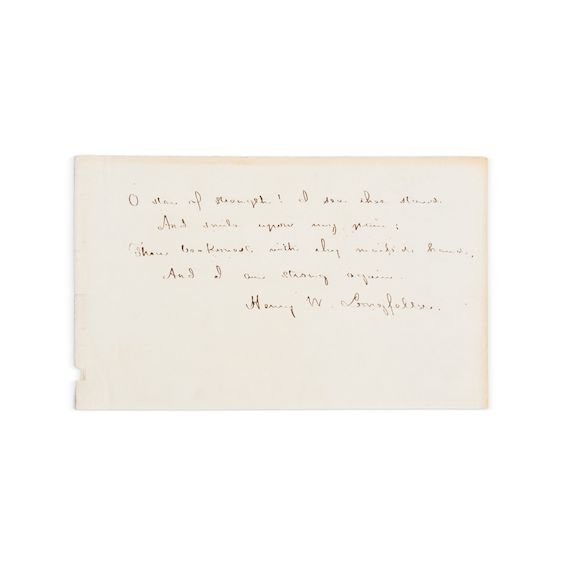 O star of strength! I see thee stand
And smile upon my pain;
Thou beckonest with thy mailéd hand,
And I am strong again.
Henry W. Longfellow.